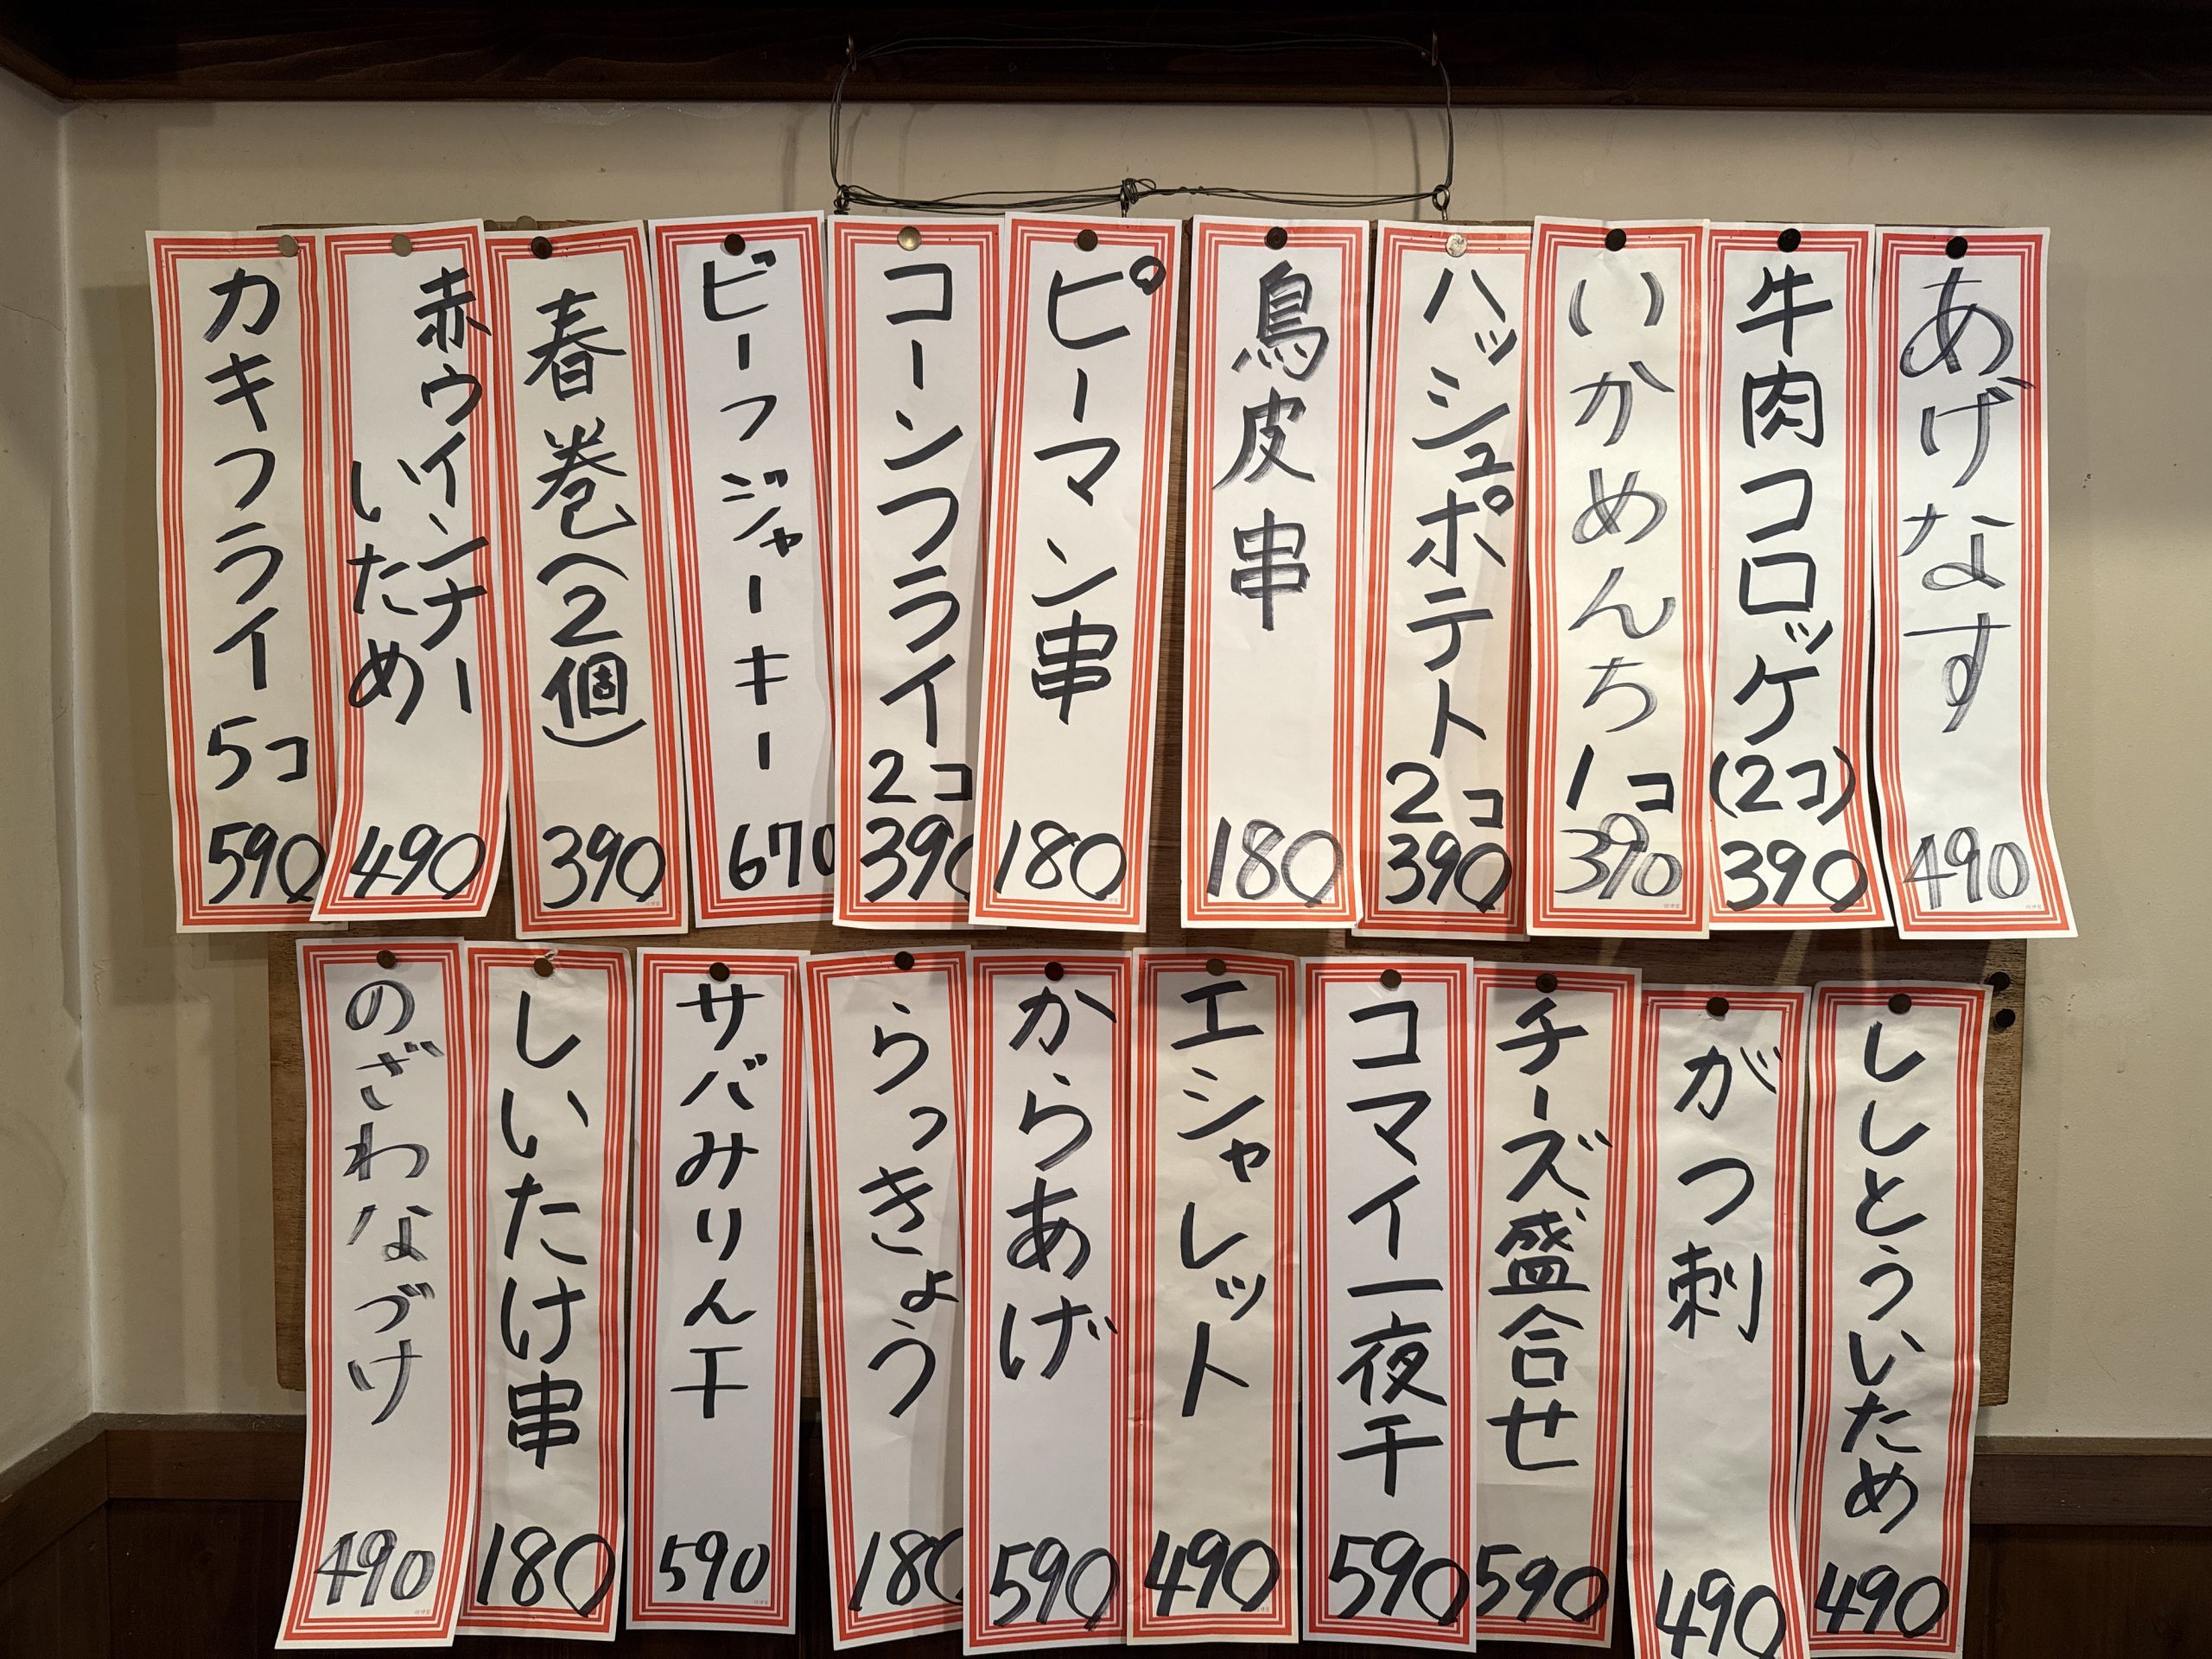 あげなす
490
牛肉コロッケ
(2コ)
390
いかめんち
1コ
390
ハッシュポテト
2コ
390
鳥皮串
180
ピーマン串
180
コーンフライ
2コ
390
ビーフジャーキー
670
春巻(2個)
390
赤ウインナー
いため
490
カキフライ
5コ
590
ししとういため
490
がつ刺
490
チーズ盛合せ
590
コマイ一夜干
590
エシャレット
490
からあげ
590
らっきょう
180
サバみりん干
590
しいたけ串
180
のざわなづけ
490